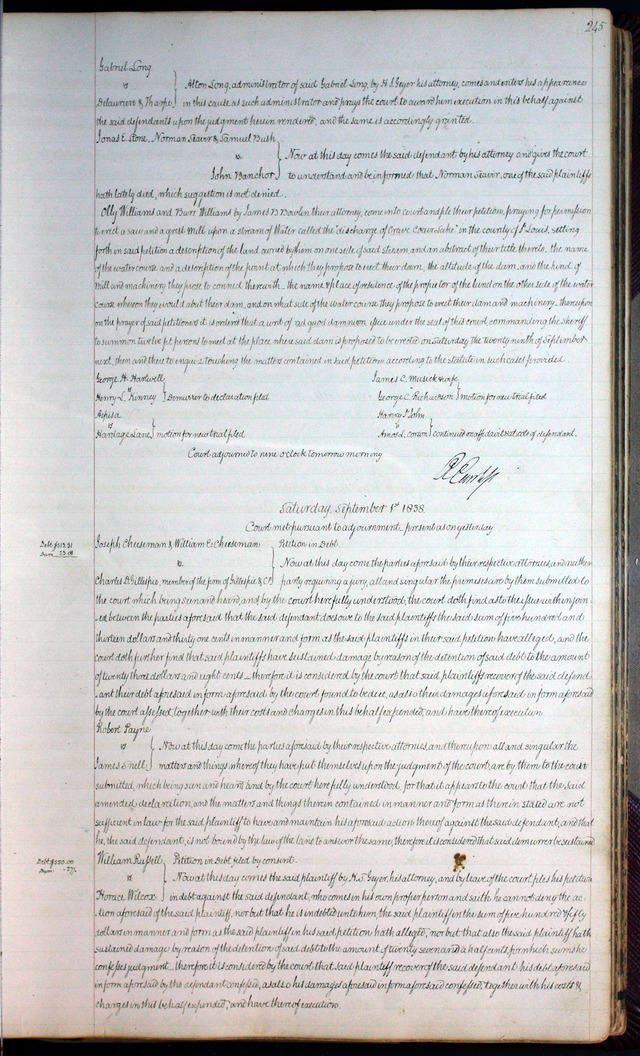 245
Gabriel Long
vs
Delauriere & Tharpe
Alton Long, administrator of said Gabriel Long, by H S Geyer his attorney, comes and enters his appearance
in this cause as such administrator and prays the court to award him execution in this behalf against
the said defendants upon the judgment herein rendered, and the same is accordingly granted.
Jonas E. Stone, Norman Stavir & Samuel Bush
vs
John Banchor
Now at this day comes the said defendant by his attorney and gives the court
to understand and be informed that Norman Stavir, one of the said plaintiffs
hath lately died, which suggestion is not denied.
Olly Williams and Burr Williams by James B Bowlin their attorney, come into court and file their petition, praying for permission
to erect a saw and a grist Mill upon a stream of Water called the "discharge of Creve Coeur Lake" in the county of St Louis, setting
forth in said petition a description of the land owned by them on one side of said stream, and an abstract of their title thereto, the name
of the water course, and a description of the point at which they propose to erect their dam, the altitude of the dam, and the kind of
Mill and machinery they prose to connect therewith, the name & place of residence of the proprietor of the land on the other side of the water
course whereon they would abut their dam, and on what side of the water course they propose to erect their dam and machinery. thereupon
on the prayer of said petitioners it is ordered that a writ of ad quod damnum issue under the seal of this court commanding the sheriff
to summon twelve fit persons to meet at the place where said dam is proposed to be erected on Saturday the twenty ninth of September
next, then and there to enquire touching the matters contained in said petition according to the statute in such cases provided.
George H. Hartwell
vs
Henry L. Kinney
Demurrer to declaration filed
James C. Musick & wife
George C. Richardson
motion for new trial filed
vs
Hardage Lane
motion for new trial filed
Harry St John
vs
continued on affidavit at costs of defendant.
Court adjourned to nine o'clock tomorrow morning
Saturday, September 1st 1838
Court met pursuant to adjournment present as on yesterday
Debt $513.31
23.08
Joseph Cheeseman & William C. Cheeseman
vs
Charles D. Gillespie, member of the firm of Gillespie & Co
Petition in Debt.
Now at this day come the parties aforesaid by their respective attorneys, and neither
party requiring a jury, all and singular the premises are by them submitted to
the court which being seen and heard, and by the court here fully understood, the court doth find as to the issue within join
-ed between the parties aforesaid that the said defendant does owe to the said plaintiffs the said sum of five hundred and
thirteen dollars and thirty one cents in manner and form as the said plaintiffs in their said petition have alleged, and the
court doth further find that said plaintiffs have sustained damage by reason of the detention of said debt to the amount
of twenty three dollars and eight cents – therefore it is considered by the court that said plaintiffs recover of the said defend
-ant their debt aforesaid in form aforesaid by the court found to be due, as also their damages aforesaid in form aforesaid
by the court assessed, together with their costs and charges in this behalf expended, and have thereof execution
Robert Payne
vs
James Snell
Now at this day come the parties aforesaid by their respective attorneys, and thereupon all and singular the
matters and things whereof they have put themselves upon the judgment of the court, are by them to the court
submitted, which being seen and heard and by the court here fully understood, for that it appears to the court that the said
amended declaration, and the matters and things therein contained in manner and form as therein stated are not
sufficient in law for the said plaintiff to have and maintain his aforesaid action thereof against the said defendant, and that
he, the said defendant, is not bound by the law of the land to answer the same, therefore it is considered that said demurrer be sustained
Debt $550.00
.27½
William Russell
vs
Horace Wilcox
Petition in Debt filed by consent.
Now at this day comes the said plaintiff by H. S. Geyer, his attorney, and by leave of the court files his petition
in debt against the said defendant, who comes in his own proper person and saith he cannot deny the ac
-tion aforesaid of the said plaintiff, nor but that he is indebted unto him, the said plaintiff in the sum of five hundred & fifty
dollars in manner and form as the said plaintiff in his said petition hath alleged, nor but that also the said plaintiff hath
sustained damage by reason of the detention of said debt to the amount of twenty seven and a half cents for which sum he
confesses judgment – therefore it is considered by the court that said plaintiff recover of the said defendant his debt aforesaid
in form aforesaid by the defendant confessed, as also his damages aforesaid in form aforesaid confessed, together with his costs &
charges in this behalf expended, and have thereof execution.